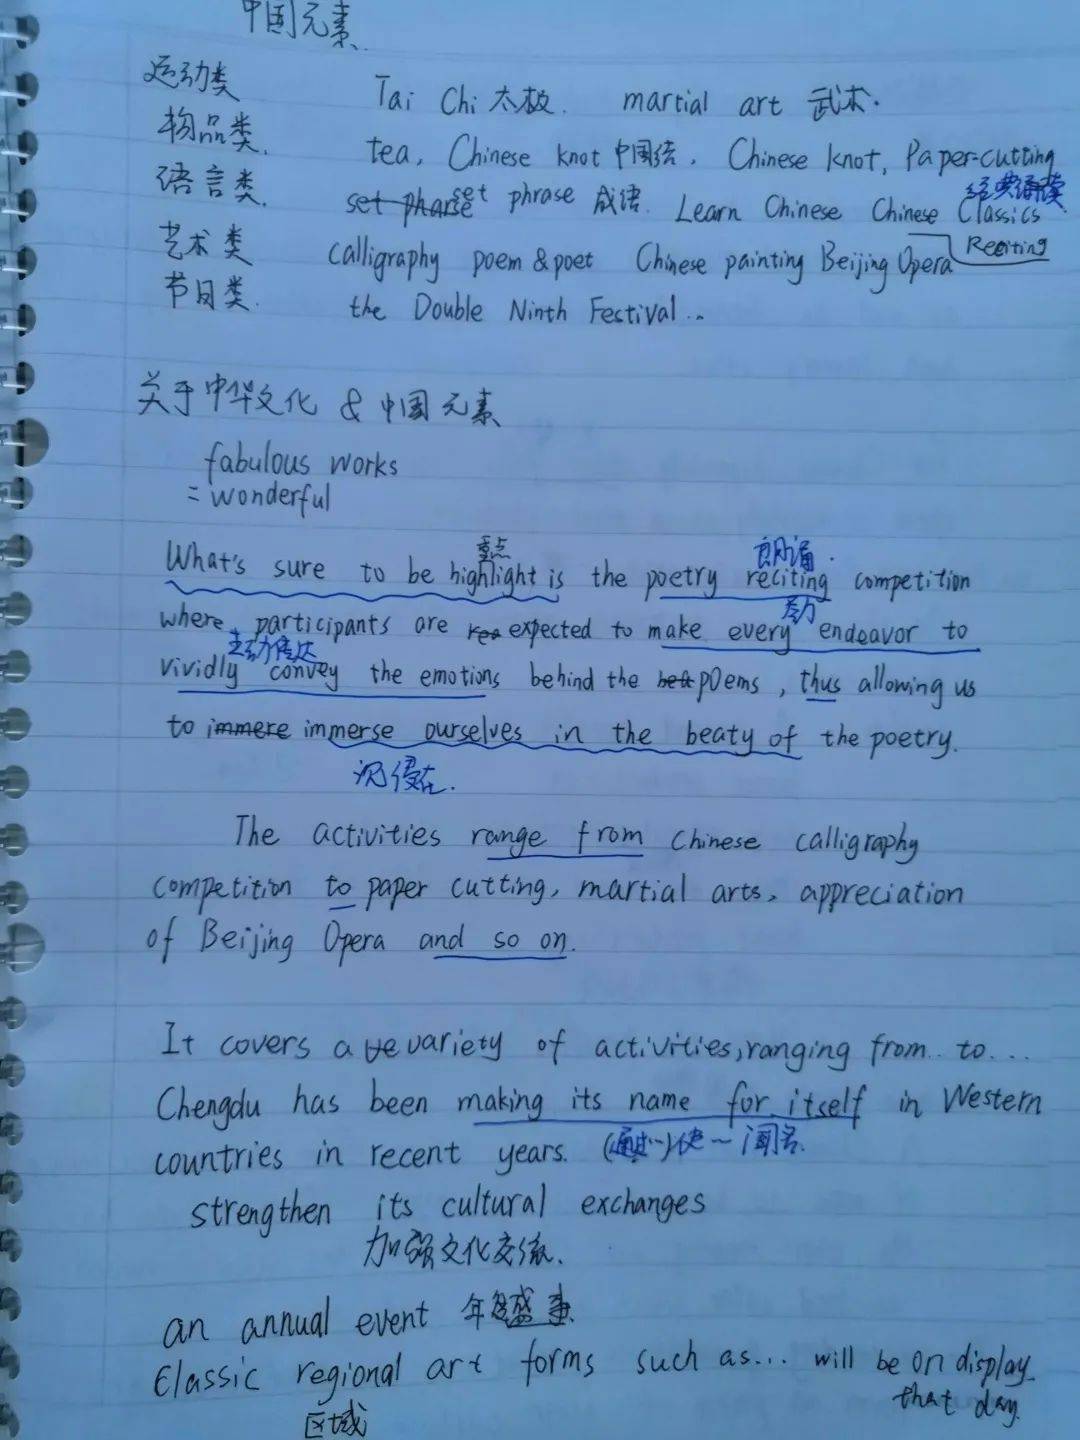 中国元素
运动类 Tai Chi 太极. martial art 武术.
物品类. tea, Chinese knot 中国结. Chinese knot, Paper-cutting
经典诵读
语言类. set pharse set phrase 成语. Learn Chinese Chinese Classics
Reciting
艺术类 calligraphy poem & poet Chinese painting Beijing Opera
节日类. the Double Ninth Festival...
关于中华文化 & 中国元素
fabulous works
= wonderful
重点 朗诵.
What's sure to be highlight is the poetry reciting competition
努力
where participants are expected to make every endeavor to
生动传达
vividly convey the emotions behind the poems, thus allowing us
to immere immerse ourselves in the beaty of the poetry.
沉侵在.
The activities range from Chinese calligraphy
competition to paper cutting, martial arts, appreciation
of Beijing Opera and so on.
It covers a variety of activities, ranging from.. to...
Chengdu has been making its name for itself in Western
countries in recent years. (通过~)使~闻名.
strengthen its cultural exchanges
加强文化交流.
an annual event 年度盛事
Classic regional art forms such as... will be on display
that day.
区域